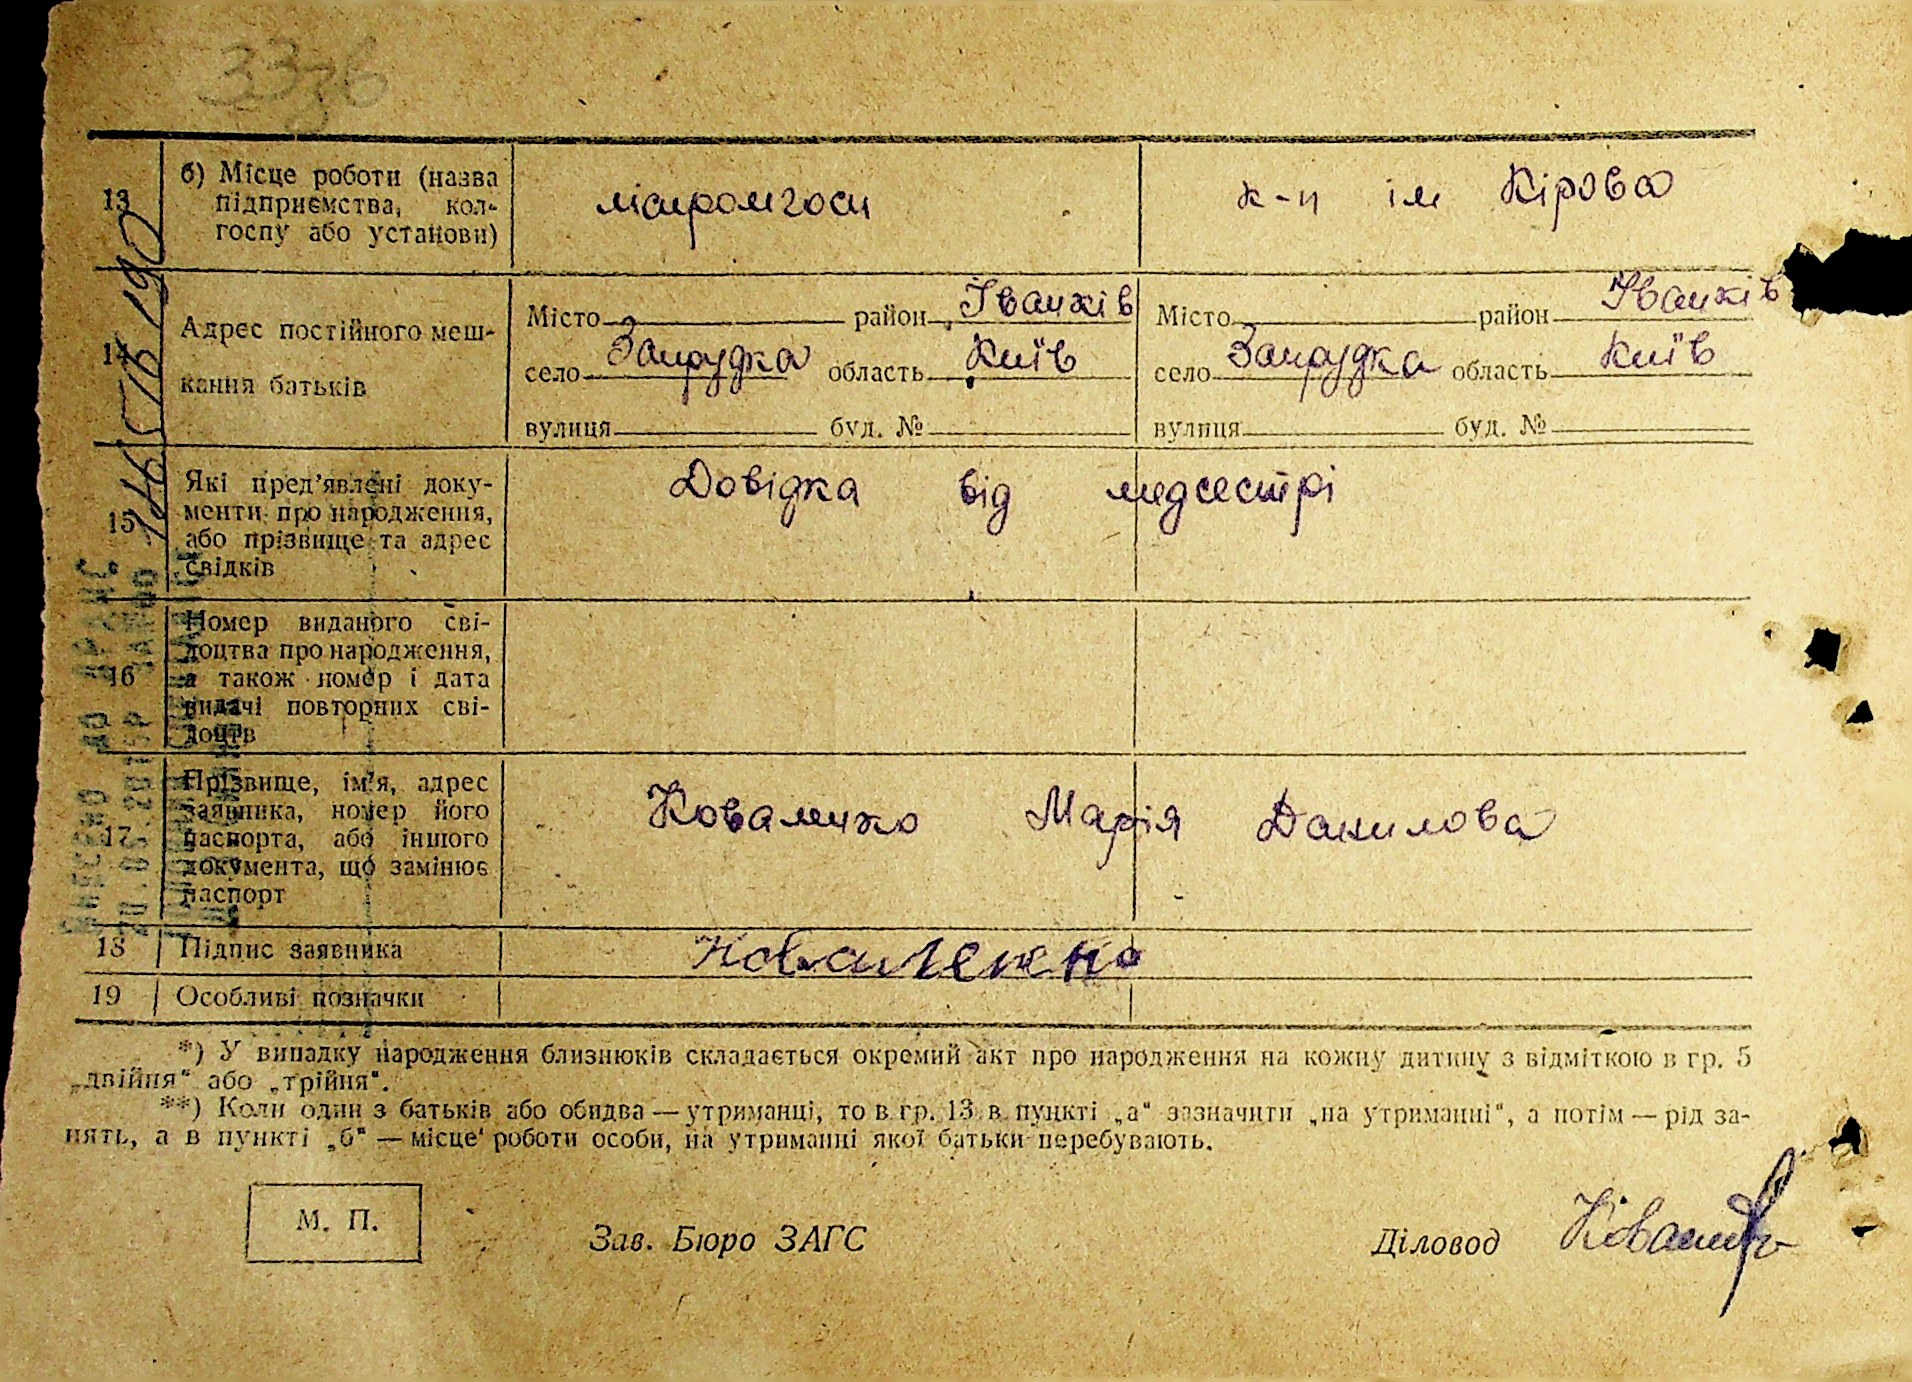 3336
13 б) Місце роботи (назва підприємства, кол-
госпу або установи)
ліспромгосп
к-п ім Кірова
14 Адрес постійного меш-
кання батьків
Місто район Іванків
село Запрудка область Київ
вулиця буд. №
Місто район Іванків
село Запрудка область Київ
вулиця буд. №
15 Які пред'явлені доку-
менти про народження,
або прізвище та адрес
свідків
Довідка від медсестрі
16 Номер виданого сві-
доцтва про народження,
а також номер і дата
видачі повторних сві-
доцтв
17 Прізвище, ім'я, адрес
заявника, номер його
паспорта, або іншого
документа, що замінює
паспорт
Коваленко Марія Данилова
18 Підпис заявника
Коваленко
19 Особливі позначки
*) У випадку народження близнюків складається окремий акт про народження на кожну дитину з відміткою в гр. 5
„двійня" або „трійня".
**) Коли один з батьків або обидва — утриманці, то в гр. 13 в пункті „а" зазначити „на утриманні", а потім — рід за-
нять, а в пункті „б" — місце роботи особи, на утриманні якої батьки перебувають.
М. П.
Зав. Бюро ЗАГС
Діловод